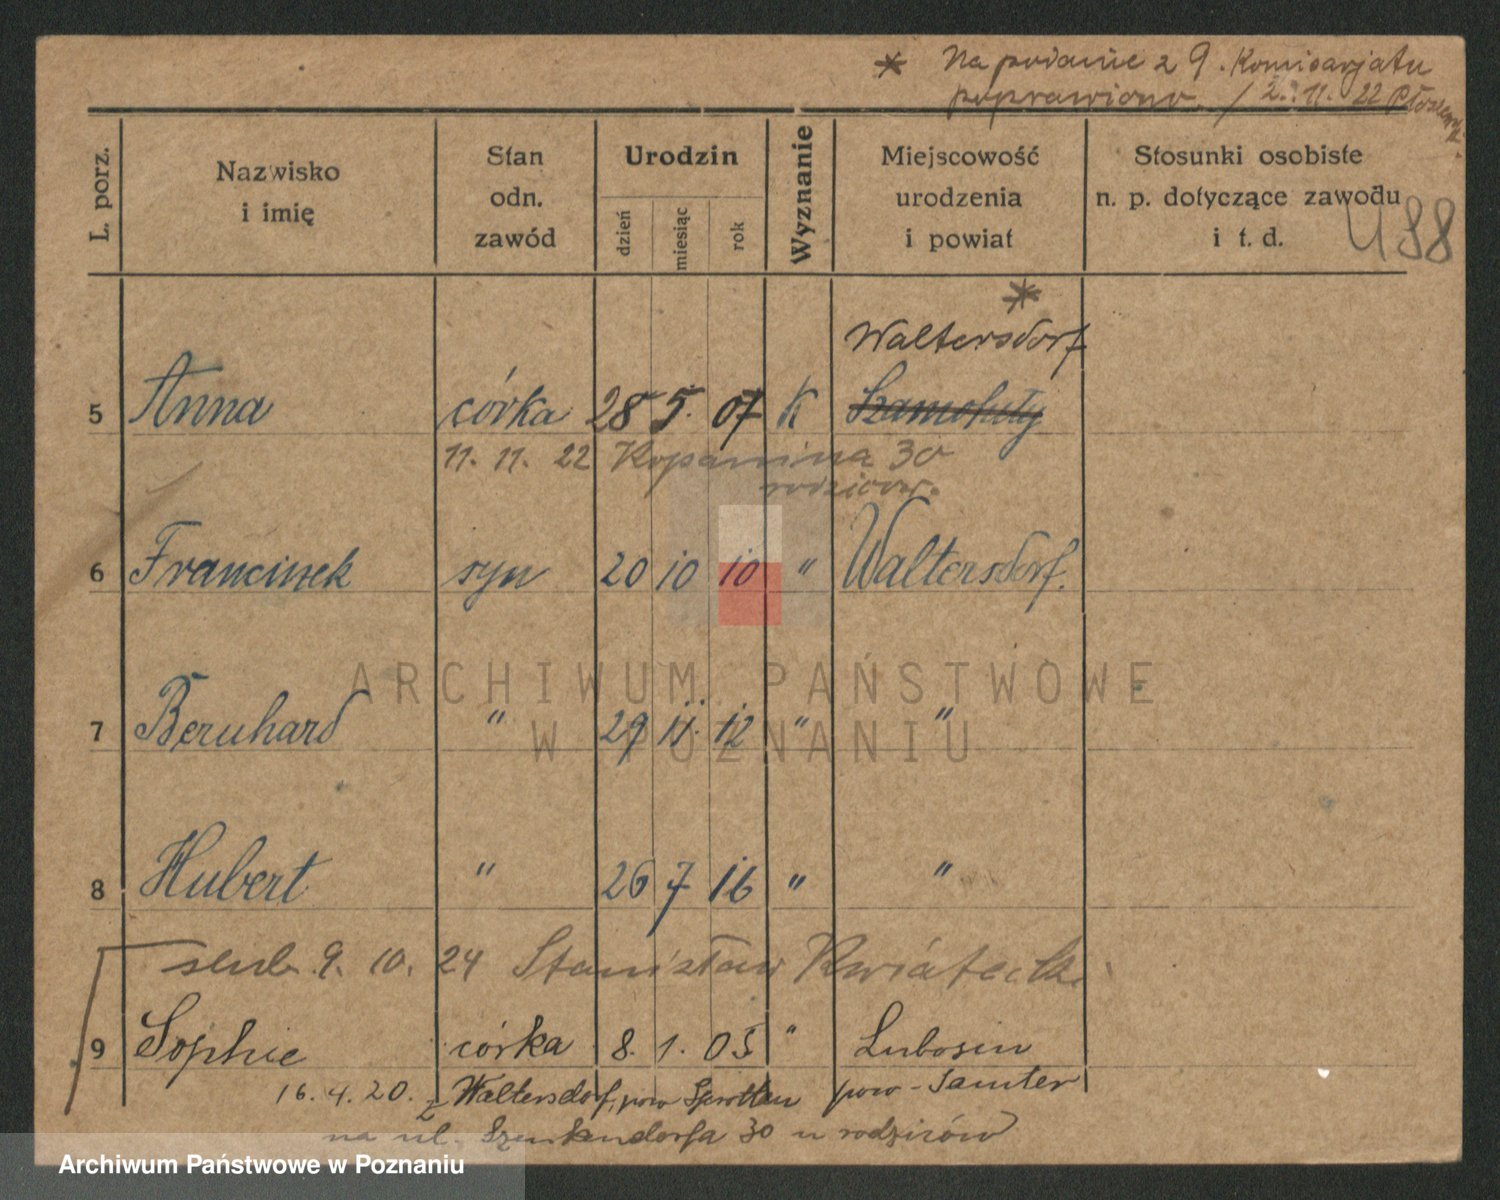 * Na podanie z 9. Komisarjatu
poprawiono. / 2. 11. 22
L. porz.
Nazwisko
i imię
Stan
odn.
zawód
Urodzin
dzień
miesiąc
rok
Wyznanie
Miejscowość
urodzenia
i powiat
Stosunki osobiste
n. p. dotyczące zawodu
i t. d.
488
*
Waltersdorf
5 Anna córka 28 5. 07 K Szamotuły
11. 11. 22 Kopanina 30
rodziców.
6 Francinek syn 20 10 10 " Waltersdorf.
ARCHIWUM PAŃSTWOWE
W POZNANIU
7 Bernhard " 29 11. 12 " "
8 Hubert " 26 7 16 " "
9. 10. 24 Stanisław
9 Sophie córka 8. 1. 05 " Lubosin
16. 4. 20. z Waltersdorf, pow Sprottau pow - Samter
na ul. 30 u rodziców
Archiwum Państwowe w Poznaniu